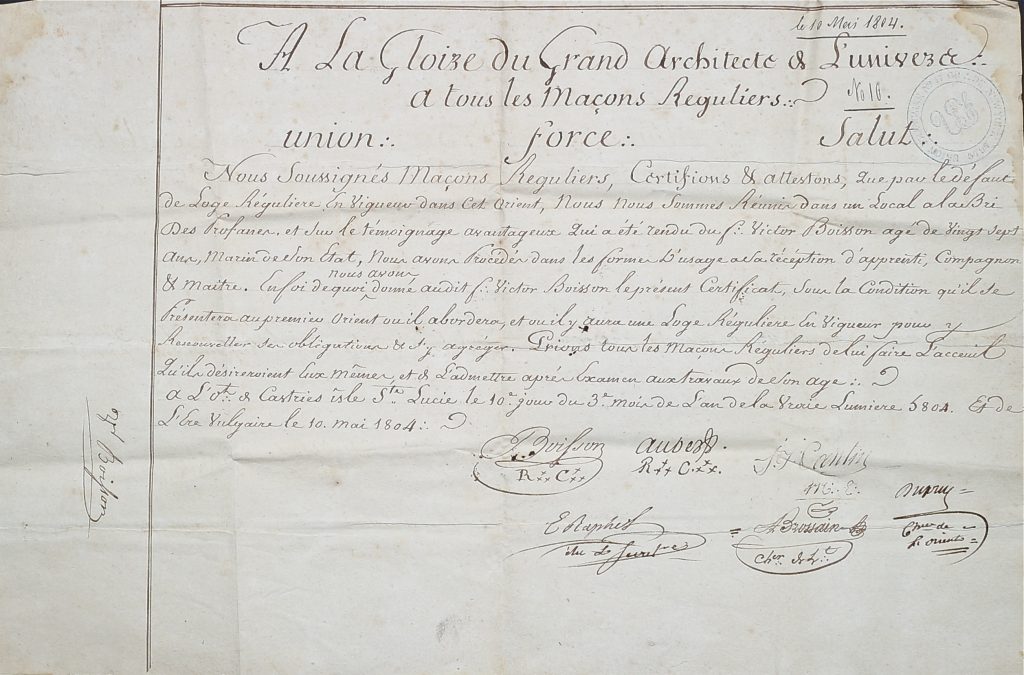 le 10 Mai 1804.
A La Gloire du Grand Architecte de L'univers∴
A tous les Maçons Reguliers∴
No 10.
union∴ force∴ Salut∴
Nous Soussignés Maçons Reguliers, Certifions & attestons, Que par le défaut
de Loge Réguliere En Vigueur dans Cet Orient, Nous Nous Sommes Réunis dans un Local a la Bri
Des Profanes, et Sur le témoignage avantageux Qui a été rendu du f∴ Victor Boisson agé de Vingt Sept
Ans, Marin de Son Etat, Nous avons Procédés dans les formes D'usage a sa réception d'apprenti, Compagnon
& maitre. En foi de quoi nous avons donné audit f∴ Victor Boisson le présent Certificat, Sous la Condition qu'il Se
Présentera au premier Orient ou il abordera, et ou il y aura une Loge Réguliere En Vigueur pour y
Renouveller Ses obligations & S'y agréger. Prions tous les Maçons Réguliers de lui faire L'acceuil
Qu'ils désireroient Eux Mêmes, et de L'admettre après Examen aux travaux de Son age∴
A L'Ot. de Castries isle Ste. Lucie le 10e. jour du 3e. mois de L'an de la Vraie Lumiere 5804. Et de
L'Ere Vulgaire le 10. mai 1804∴
Boisson
R++ C++
R++ C++.
E Raphel
Dupuy
Cher de
L'orient
Boisson